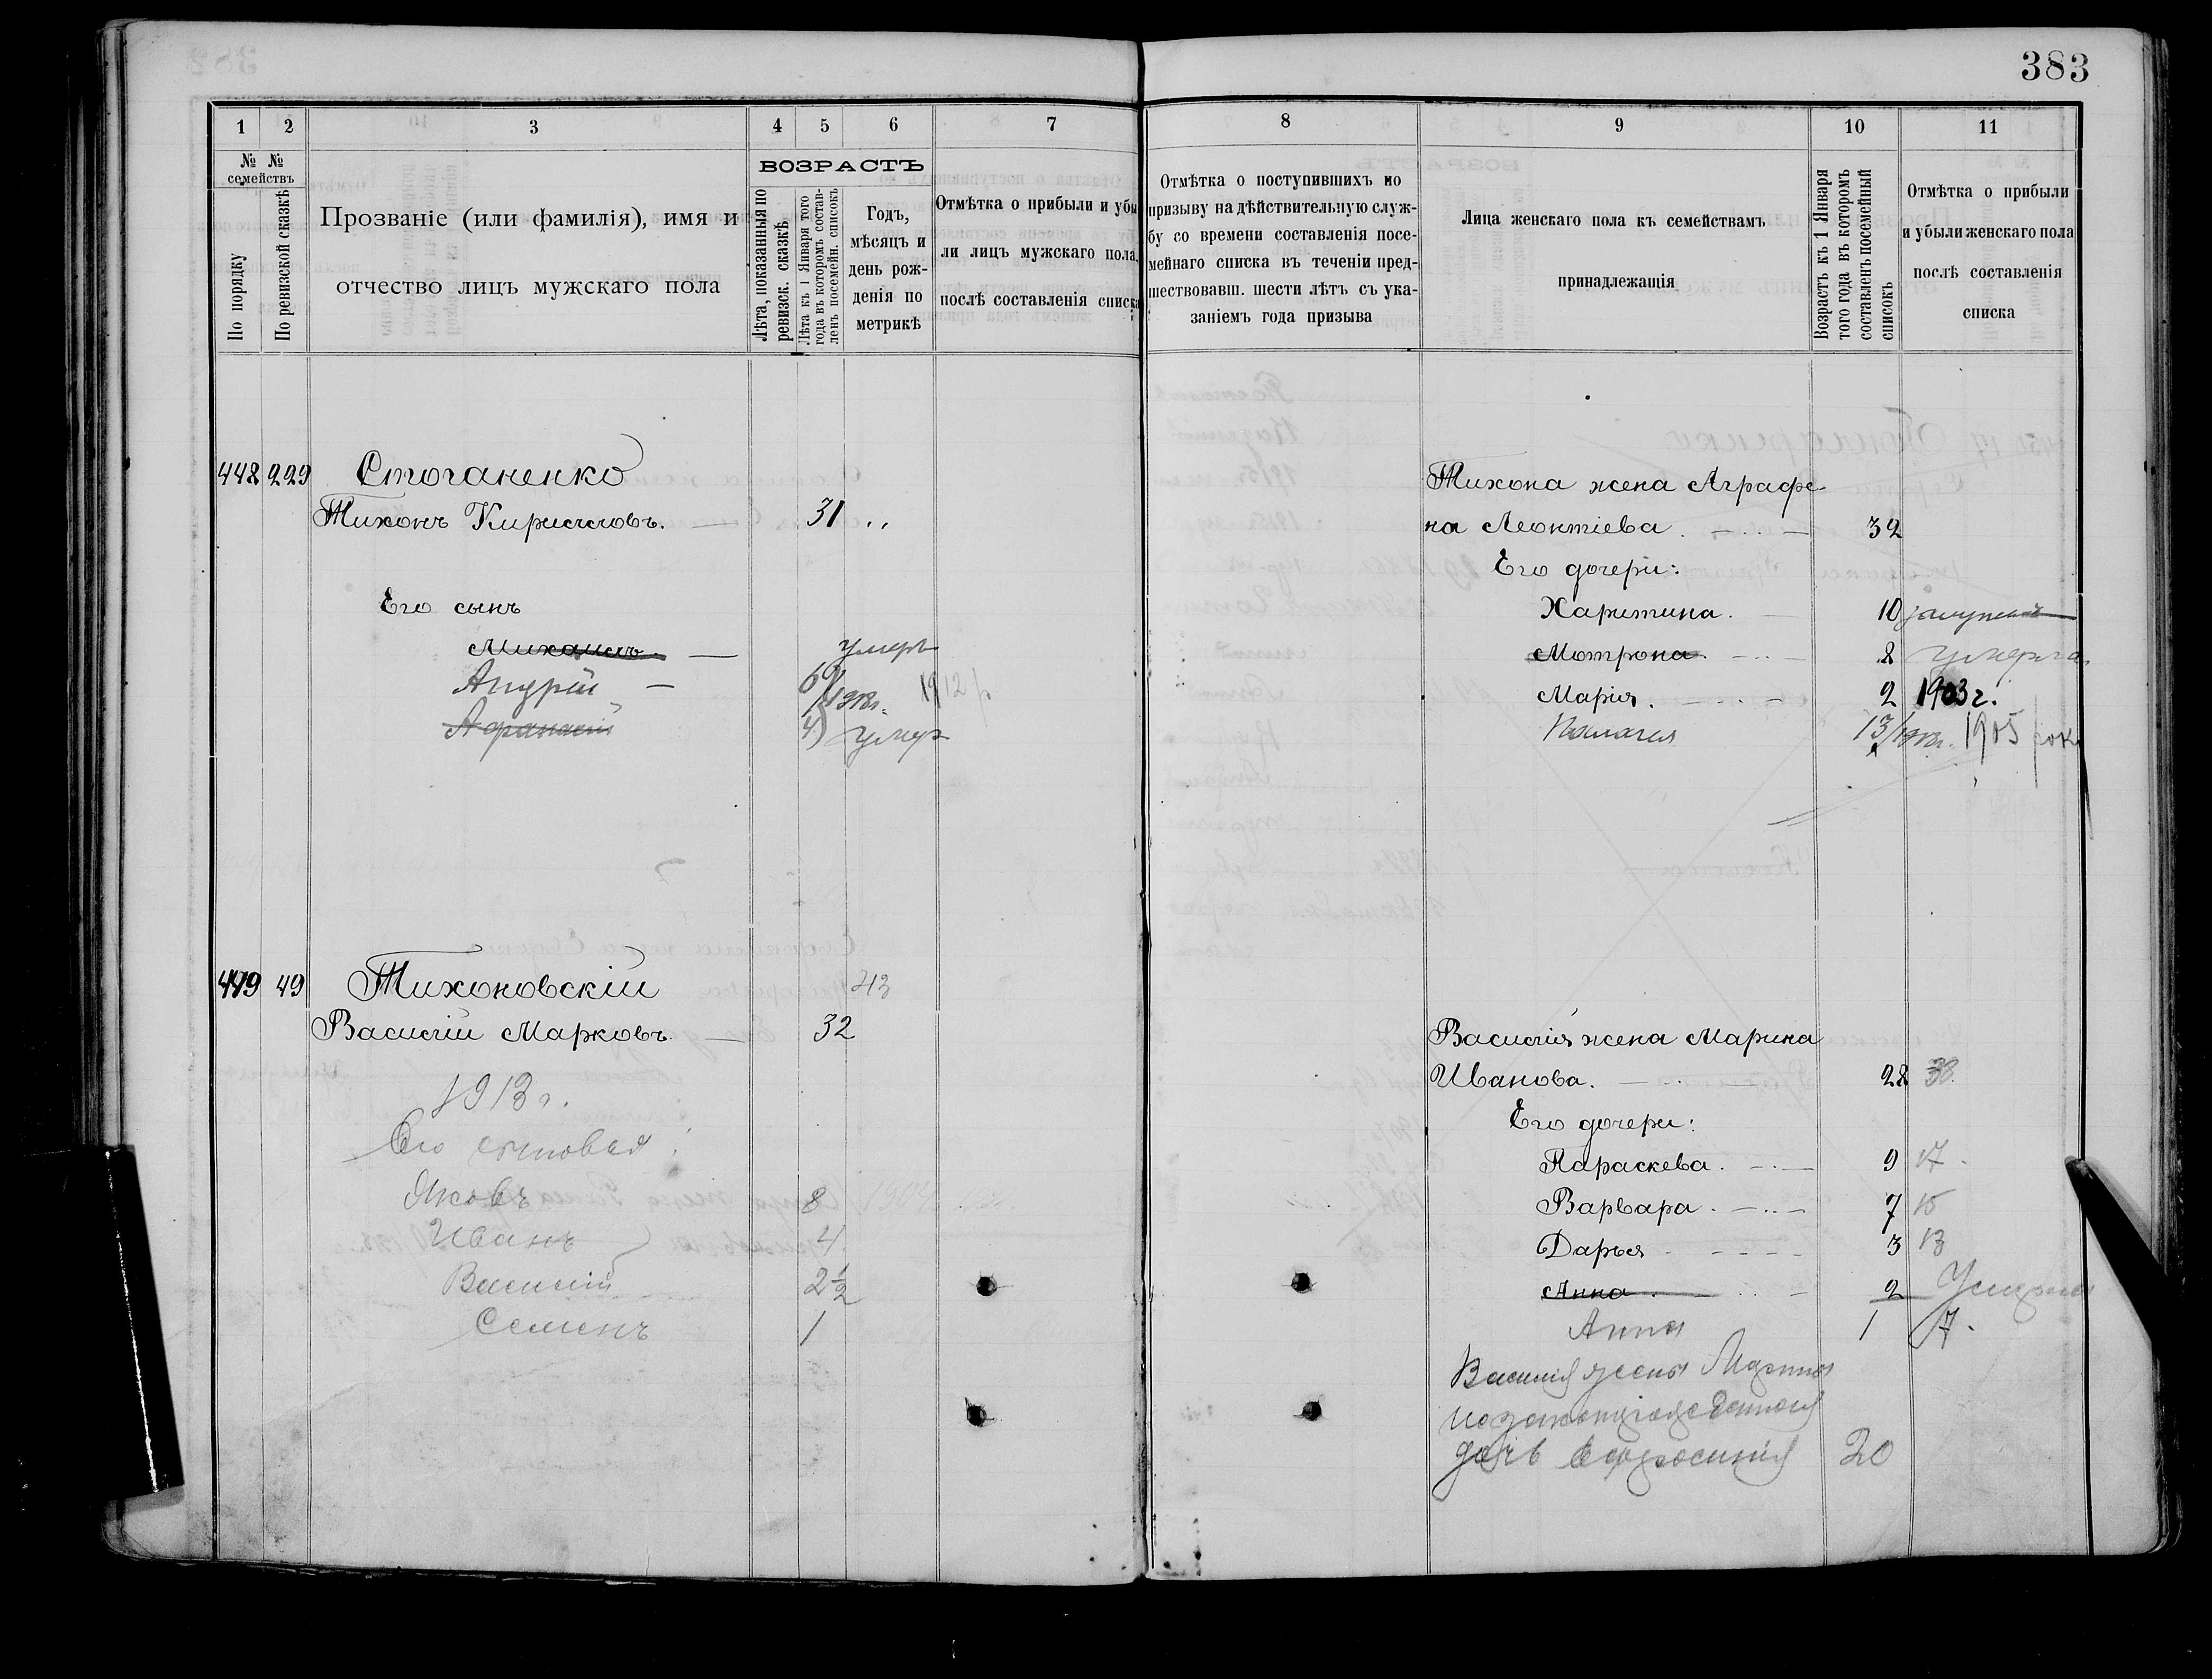 383
1 2 3 4 5 6 7
№ № семействъ
По порядку
По ревизской сказкѣ
Прозваніе (или фамилія), имя и
отчество лицъ мужскаго пола
ВОЗРАСТЪ
Лѣта, показанныя по
ревизск. сказкѣ
Лѣта къ 1 Января того
года въ которомъ состав-
ленъ посемейн. списокъ
Годъ,
мѣсяцъ и
день рож-
денія по
метрикѣ
Отмѣтка о прибыли и убы
ли лицъ мужскаго пола,
послѣ составленія списка
448 229 Стоганенко
Тихонъ Кирилловъ. — 31 „
Его сынъ
Михаилъ. — умеръ
Андрій — 6 1913г. 1912 р
Афанасій 4 умер
449 49 Тихоновскій 43
Василій Марковъ — 32
1913 г.
Его сыновья:
Яковъ 8 1904
Иванъ 4
Василій 2½
Семенъ 1
8 9 10 11
Отмѣтка о поступившихъ по
призыву на дѣйствительную служ-
бу со времени составленія посе-
мейнаго списка въ теченіи пред-
шествовавш. шести лѣтъ съ ука-
заніемъ года призыва
Лица женскаго пола къ семействамъ
принадлежащія
Возрастъ къ 1 Января
того года въ которомъ
составленъ посемейный
списокъ
Отмѣтка о прибыли
и убыли женскаго пола
послѣ составленія
списка
Тихона жена Аграфе-
на Леонтіева. — 32
Его дочери:
Харитина. — 10 замужемъ
Мотрона. — 8 умерла
Марія. — 2 1903 г.
Пелагия 13/1913г. 1905 рок
Василія жена Марина
Иванова. — 28 38.
Его дочери:
Параскева. — 9 17.
Варвара. — 7 15
Дарья — 3 13
Анна. — 2 Умерла
Анна 1 7.
Василія жены Марины
незаконнорожденная
дочь Ефросинія 20